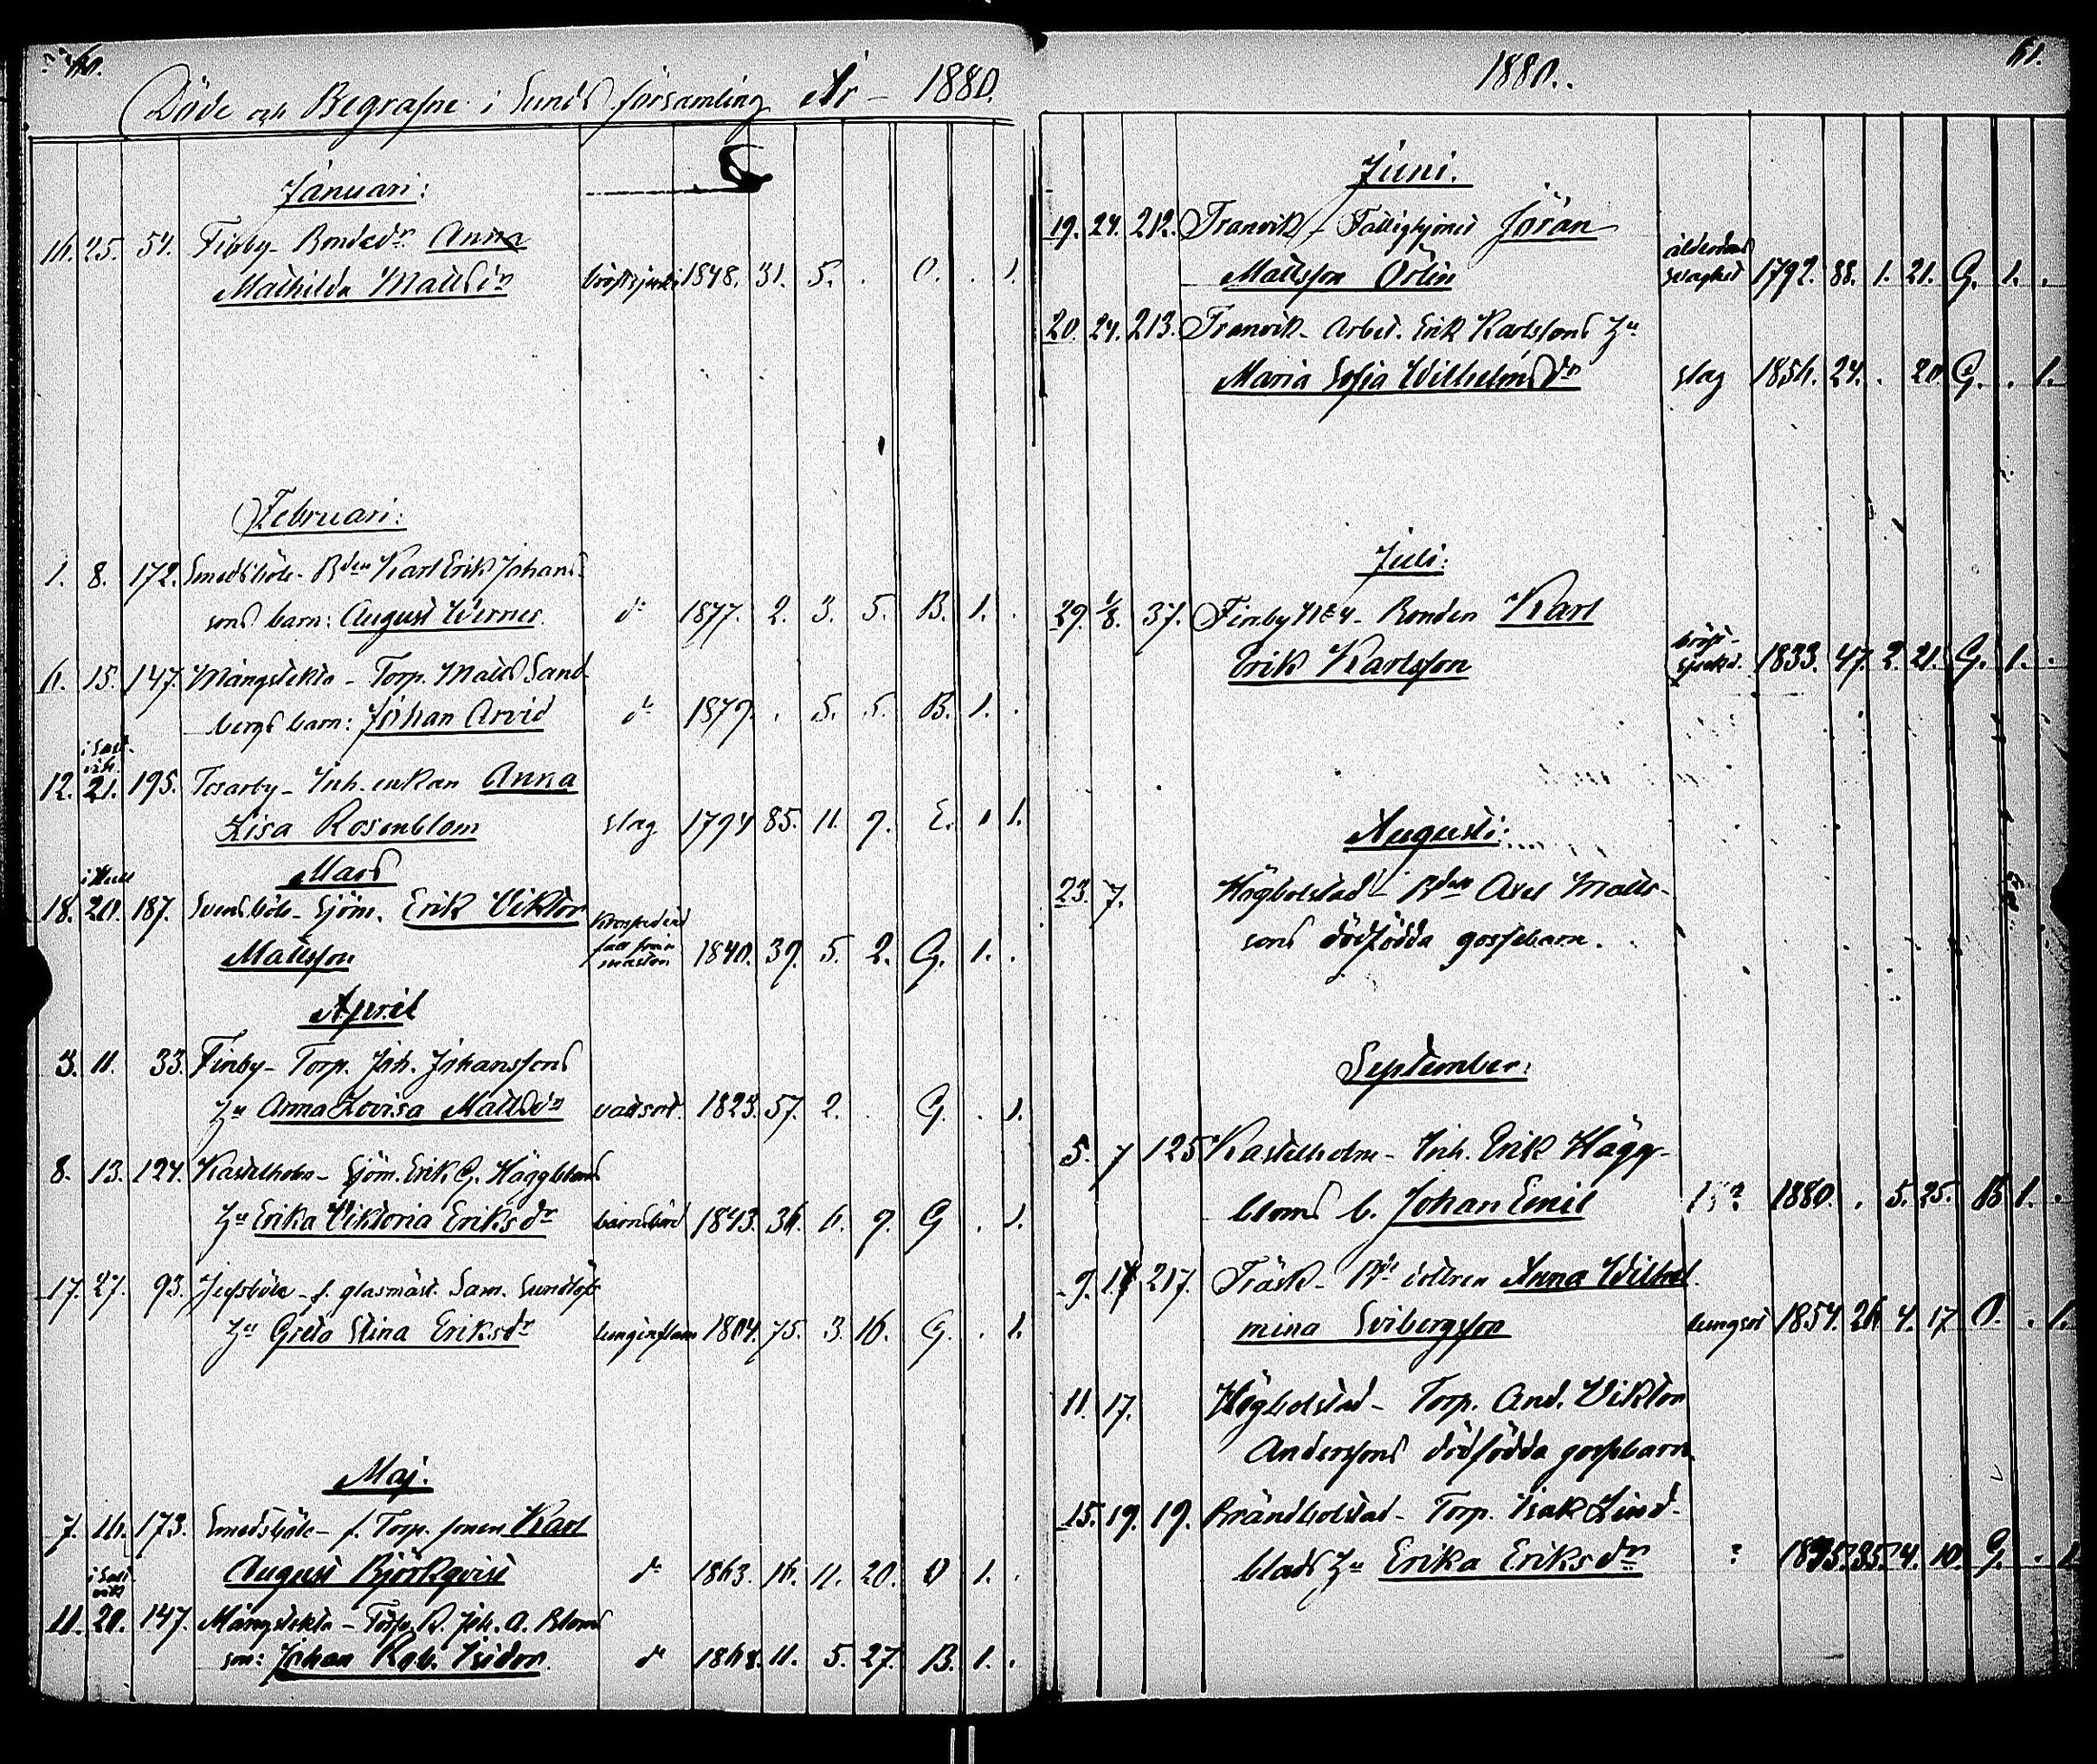 60.
Döde och Begrafne i Sunds församling År - 1880.
Januari:
16. 25. 54. Finby - Bondedr Anna
Mathilda Mattsdr bröstsjukd 1848. 31. 5. . O. . 1.
Februari:
1. 8. 172. Smedsböle - Bden Karl Erik Johans-
sons barn: August Werner do 1877. 2. 3. 5. B. 1. .
6. 15. 147. Mångstekta - Torp. Matts Sand-
bergs barn: Johan Arvid do 1879. . 5. 5. B. 1. .
i Salt-
vik
12. 21. 195. Tosarby - Inh. enkan Anna
Lisa Rosenblom slag 1794 85. 11. 9. E. . 1.
Mars
i Hull
18. 20. 187. Svensböle - Sjöm. Erik Viktor
Mattsson fall från masten 1840. 39. 5. 2. G. 1. .
April
3. 11. 33. Finby - Torp. Joh. Johanssons
Hu Anna Lovisa Mattsdr vattsot. 1823. 57. 2. . G. . 1.
8. 13. 124. Kastelholm - Sjöm. Erik G. Häggbloms
Hu Erika Viktoria Eriksdr barnsbörd 1843. 36. 6. 9. G . 1.
17. 27. 93. Jussböle - f. glasmäst. Sam. Sundlöfs
Hu Greta Stina Eriksdr lunginflam 1804. 75. 3. 16. G. . 1.
Maj.
7. 16. 173. Smedsböle - f. Torp. sonen Karl
August Björkqvist do 1863. 16. 11. 20. O 1. .
i Salt-
vik
11. 20. 147. Mångstekta - Torp. R. Joh. A. Bloms
son: Johan Rob. Isidor do 1868. 11. 5. 27. B. 1. .
61.
1880.
Juni.
19. 24. 212. Tranvik - Fattighjonet Jöran
Mattsson Ölin ålderdoms svaghet 1792. 88. 1. 21. G. 1. .
20. 24. 213. Tranvik - Arbet. Erik Karlssons Hu
Maria Sofia Wilhelmsdr slag 1856. 24. . 20 G. . 1.
Juli:
29. 1/8. 37. Finby No 4 - Bonden Karl
Erik Karlsson bröst-sjukd. 1833. 47. 2. 21. G. 1. .
Augusti:
23. 7. Högbolstad - Bden Axel Matts-
sons dödfödda gossebarn.
September:
5. 7 125 Kastelholm - Inh. Erik Hägg-
bloms b. Johan Emil 1880. . 5. 25. B 1. .
9. 17 217. Träsk - Bde dottren Anna Wilhel-
mina Svibergsson lungsot 1854. 26 4. 17 O. . 1.
11. 17. Högbolstad - Torp. And. Viktor
Anderssons dödfödda gossebarn
15. 19. 19. Brändbolstad - Torp. Isak Lind-
blads Hu Erika Eriksdr ? 1845. 35. 4. 10. G. . 1